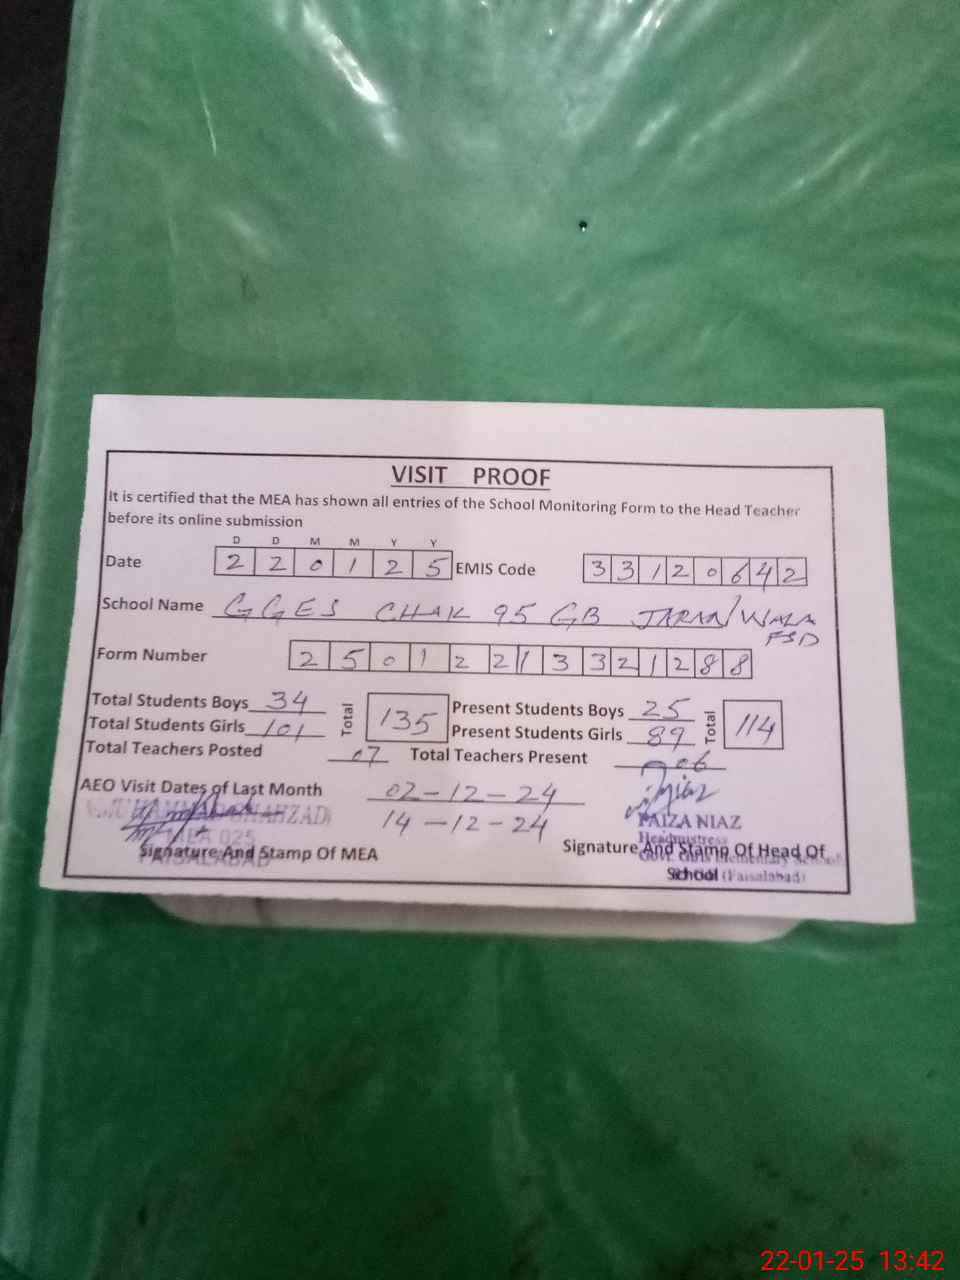 VISIT PROOF
It is certified that the MEA has shown all entries of the School Monitoring Form to the Head Teacher
before its online submission
D D M M Y Y
Date 2 2 0 1 2 5 EMIS Code 3 3 1 2 0 6 4 2
School Name GGES CHAK 95 GB JARANWALA
FSD
Form Number 2 5 0 1 2 2 1 3 3 2 1 2 8 8
Total Students Boys 34 Total 135 Present Students Boys 25 Total 114
Total Students Girls 101 Present Students Girls 89
Total Teachers Posted 07 Total Teachers Present 06
AEO Visit Dates of Last Month 02-12-24
14-12-24
MUHAMMAD SHAHZAD
MEA 025
FAISALABAD
Signature And Stamp Of MEA
FAIZA NIAZ
Headmistress
Govt. Girls Elementary School
(Faisalabad)
Signature And Stamp Of Head Of
School
22-01-25 13:42